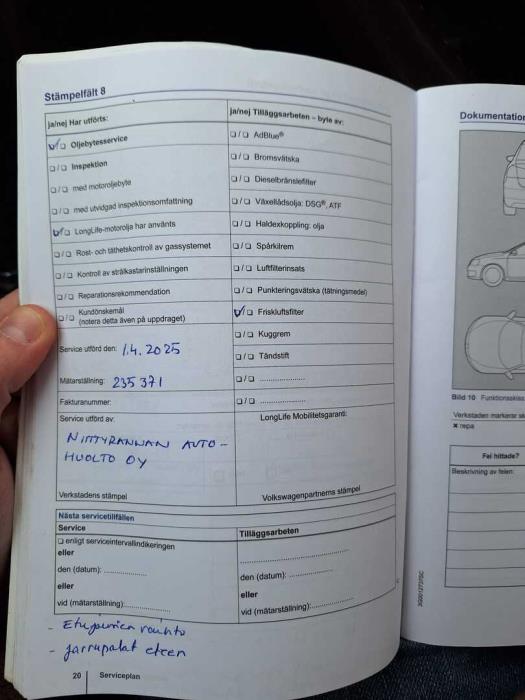 Stämpelfält 8
ja/nej Har utförts:
☑/☐ Oljebytesservice
☐/☐ Inspektion
☐/☐ med motoroljebyte
☐/☐ med utvidgad inspektionsomfattning
☑/☐ LongLife-motorolja har använts
☐/☐ Rost- och täthetskontroll av gassystemet
☐/☐ Kontroll av strålkastarinställningen
☐/☐ Reparationsrekommendation
☐/☐ Kundönskemål
(notera detta även på uppdraget)
Service utförd den: 1.4.2025
Mätarställning: 235 371
Fakturanummer:
Service utförd av:
NIITTYRANNAN AUTO-
HUOLTO OY
Verkstadens stämpel
ja/nej Tilläggsarbeten – byte av:
☐/☐ AdBlue®
☐/☐ Bromsvätska
☐/☐ Dieselbränslefilter
☐/☐ Växellådsolja: DSG®, ATF
☐/☐ Haldexkoppling: olja
☐/☐ Spårkilrem
☐/☐ Luftfilterinsats
☐/☐ Punkteringsvätska (tätningsmedel)
☑/☐ Friskluftsfilter
☐/☐ Kuggrem
☐/☐ Tändstift
☐/☐ ....................
☐/☐ ....................
LongLife Mobilitetsgaranti:
Volkswagenpartnerns stämpel
Nästa servicetillfällen
Service
☐ enligt serviceintervallindikeringen
eller
den (datum): ..............
eller
vid (mätarställning): ..............
Tilläggsarbeten
..............................
den (datum): ..............
eller
vid (mätarställning): ..............
- jarrupalat eteen
20 Serviceplan
Dokumentation
Bild 10 Funktionsskiss
Verkstaden markerar
Fel hittade?
Beskrivning av felen: